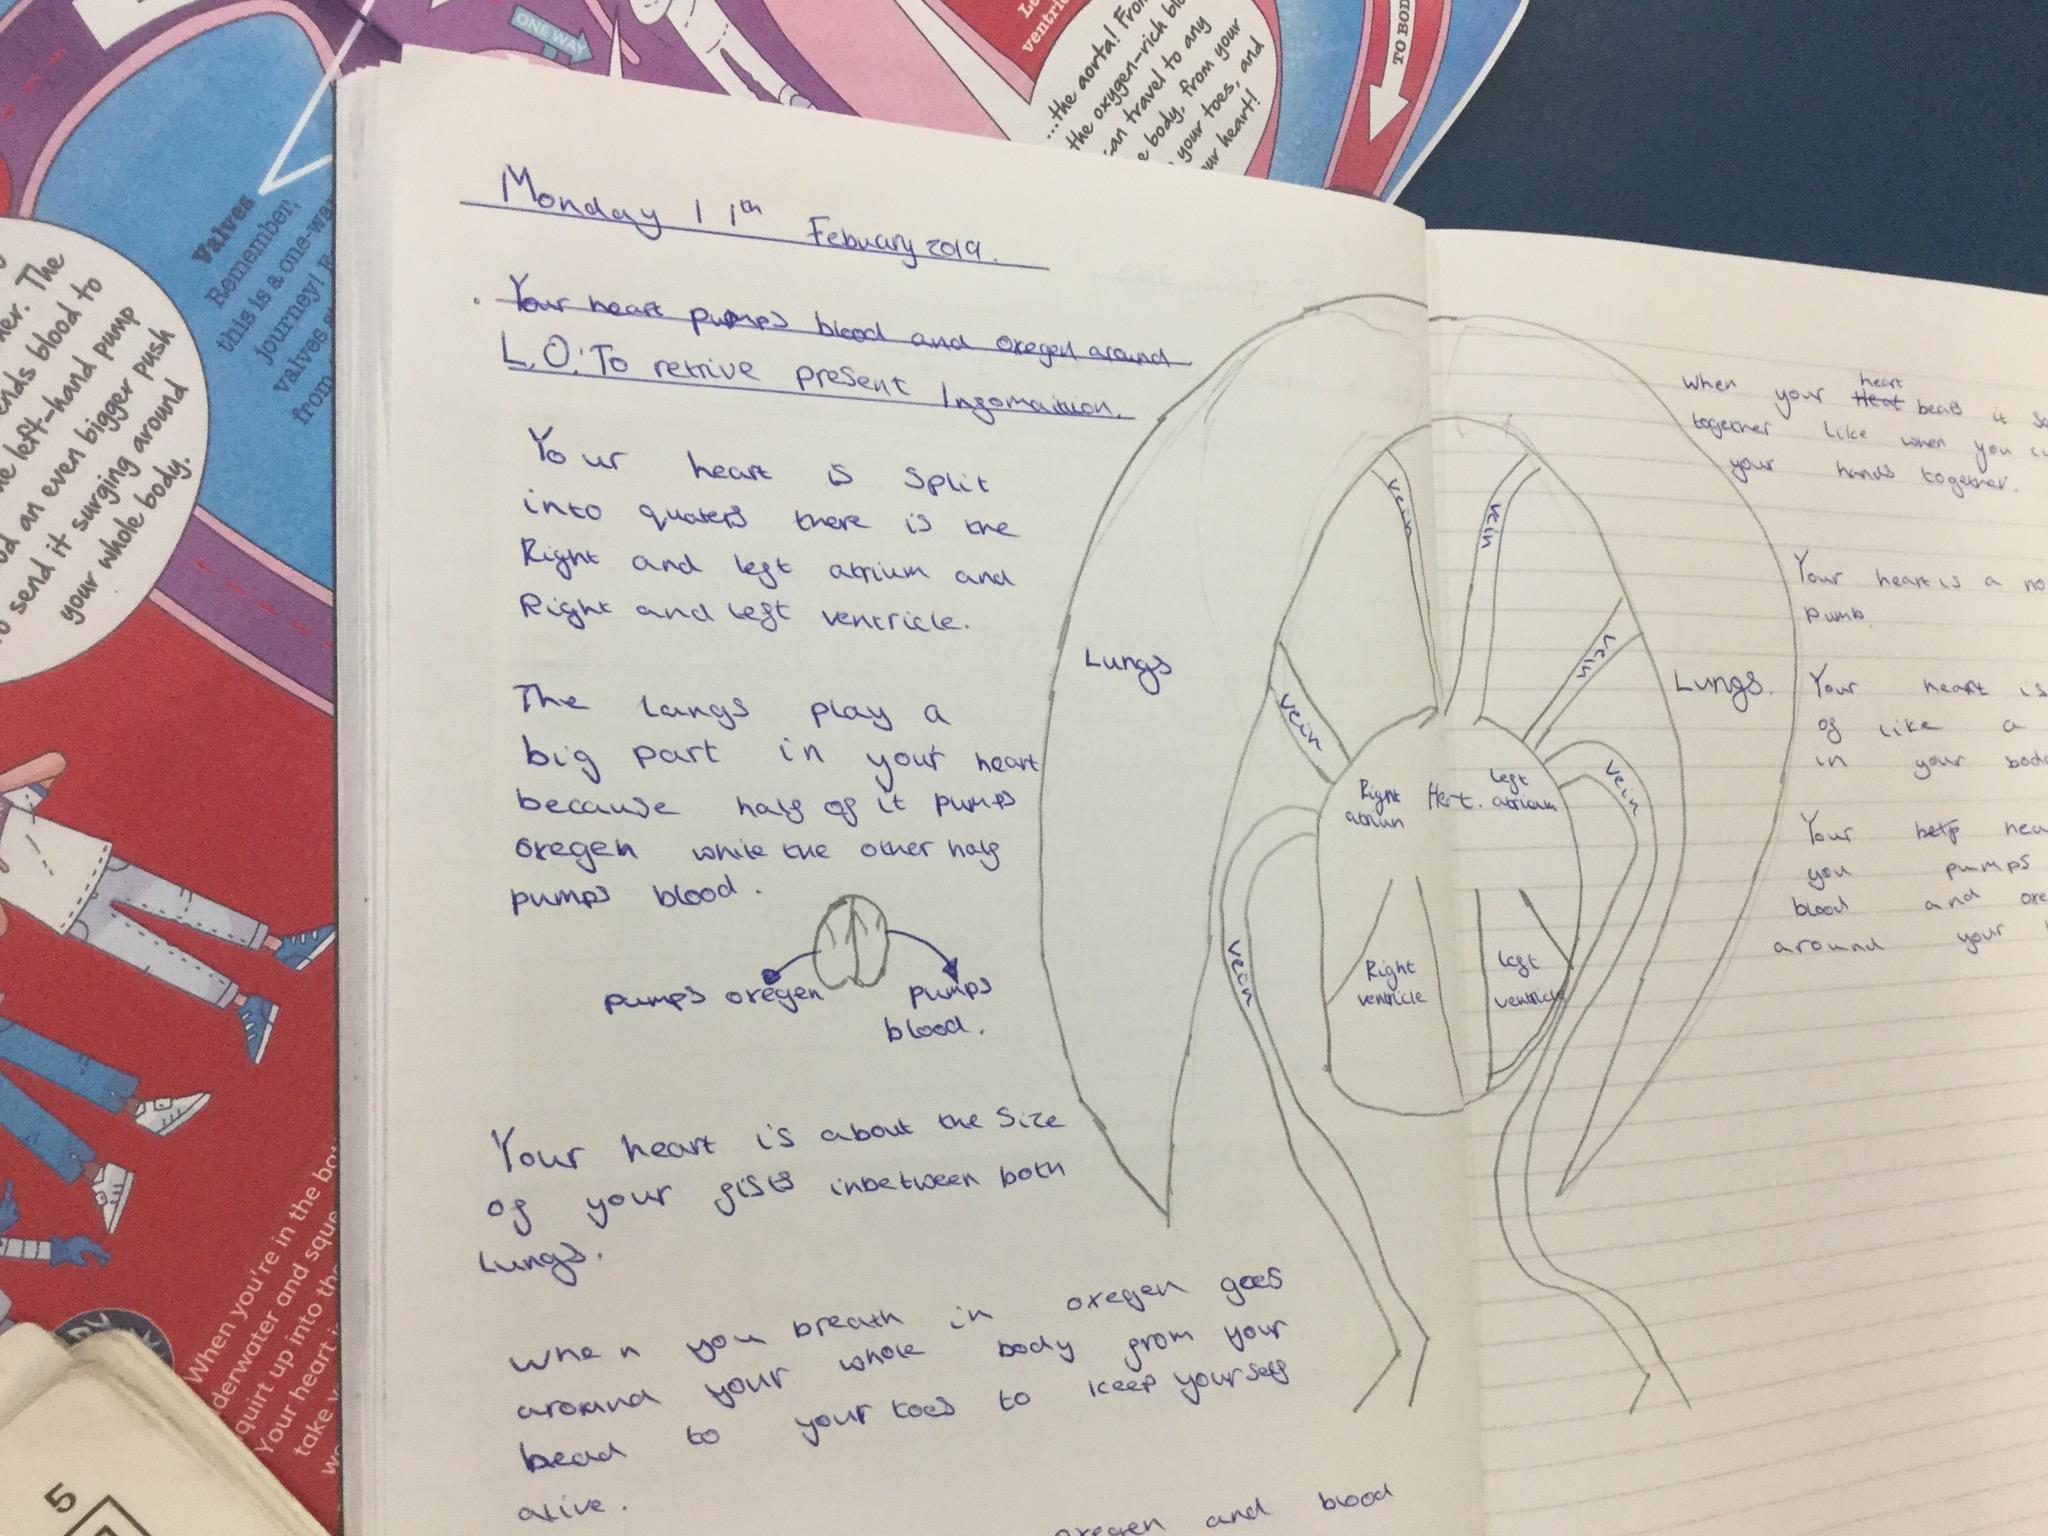 ONE WAY
...the aorta! From
the oxygen-rich bl
can travel to any
e body, from your
your toes, and
ur heart!
TO BOD
Valves
Remember,
this is a one-wa
journey!
valves
from
her. The
ends blood to
e left-hand pump
d an even bigger push
o send it surging around
your whole body.
When you're in the
derwater and sque
quirt up into th
Your heart i
take
5
Monday 11th Febuary 2019.
Your heart pumps blood and oxegen around
L.O: To retrive present Ingomaition.
Your heart is split
into quaters there is the
Right and left atrium and
Right and left ventricle.
The lungs play a
big part in your heart
because half of it pumps
oxegen while the other half
pumps blood.
pumps oxegen
pumps
blood.
Your heart is about the size
of your fists inbetween both
lungs.
When you breath in oxegen goes
around your whole body from your
head to your toes to keep yourself
alive.
oxegen and blood
Lungs
vein
vein
vein
vein
vein
vein
Right
atrium
Hert.
left
atrium
Right
ventricle
left
ventricle
Lungs.
When your Heat heart beats it
together like when you
your hands together.
Your heart is a
pump.
Your heart is
of like a
in your
Your help
you pumps
blood and
around your